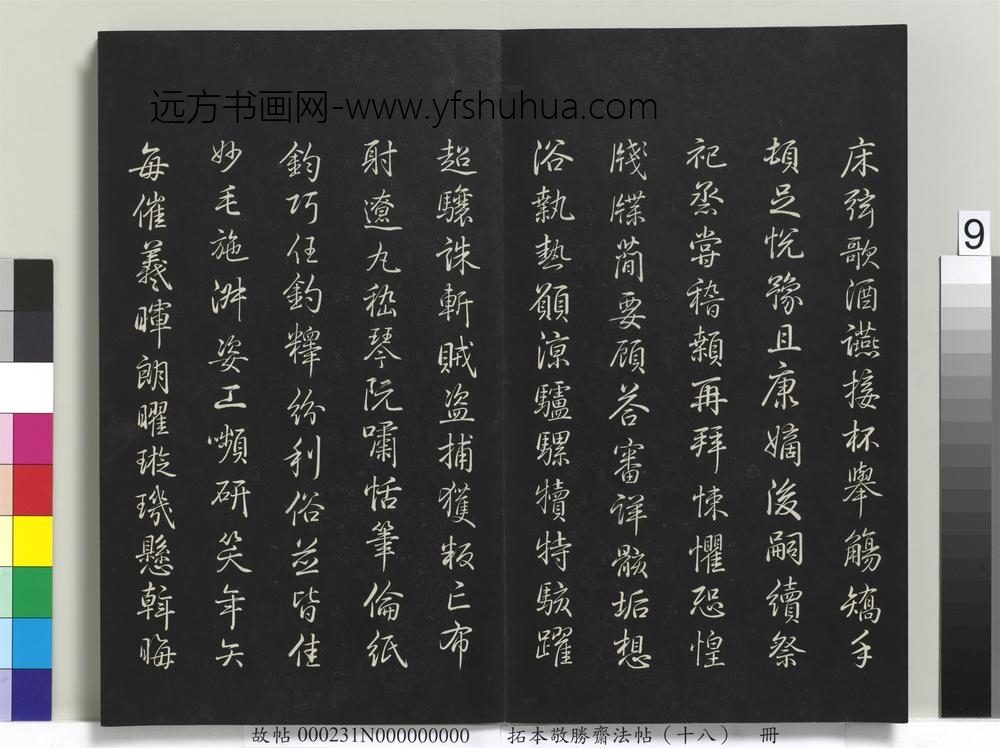 远方书画网-www.yfshuhua.com
床弦歌酒讌接杯舉觴矯手
頓足悅豫且康嫡後嗣續祭
祀烝嘗稽顙再拜悚懼恐惶
牋牒簡要顧答審詳骸垢想
浴執熱願涼驢騾犢特駭躍
超驤誅斬賊盜捕獲叛亡布
射遼丸嵇琴阮嘯恬筆倫紙
鈞巧任釣釋紛利俗並皆佳
妙毛施淑姿工嚬研笑年矢
每催羲暉朗曜璇璣懸斡晦
9
故帖 000231N000000000 拓本敬勝齋法帖（十八） 冊